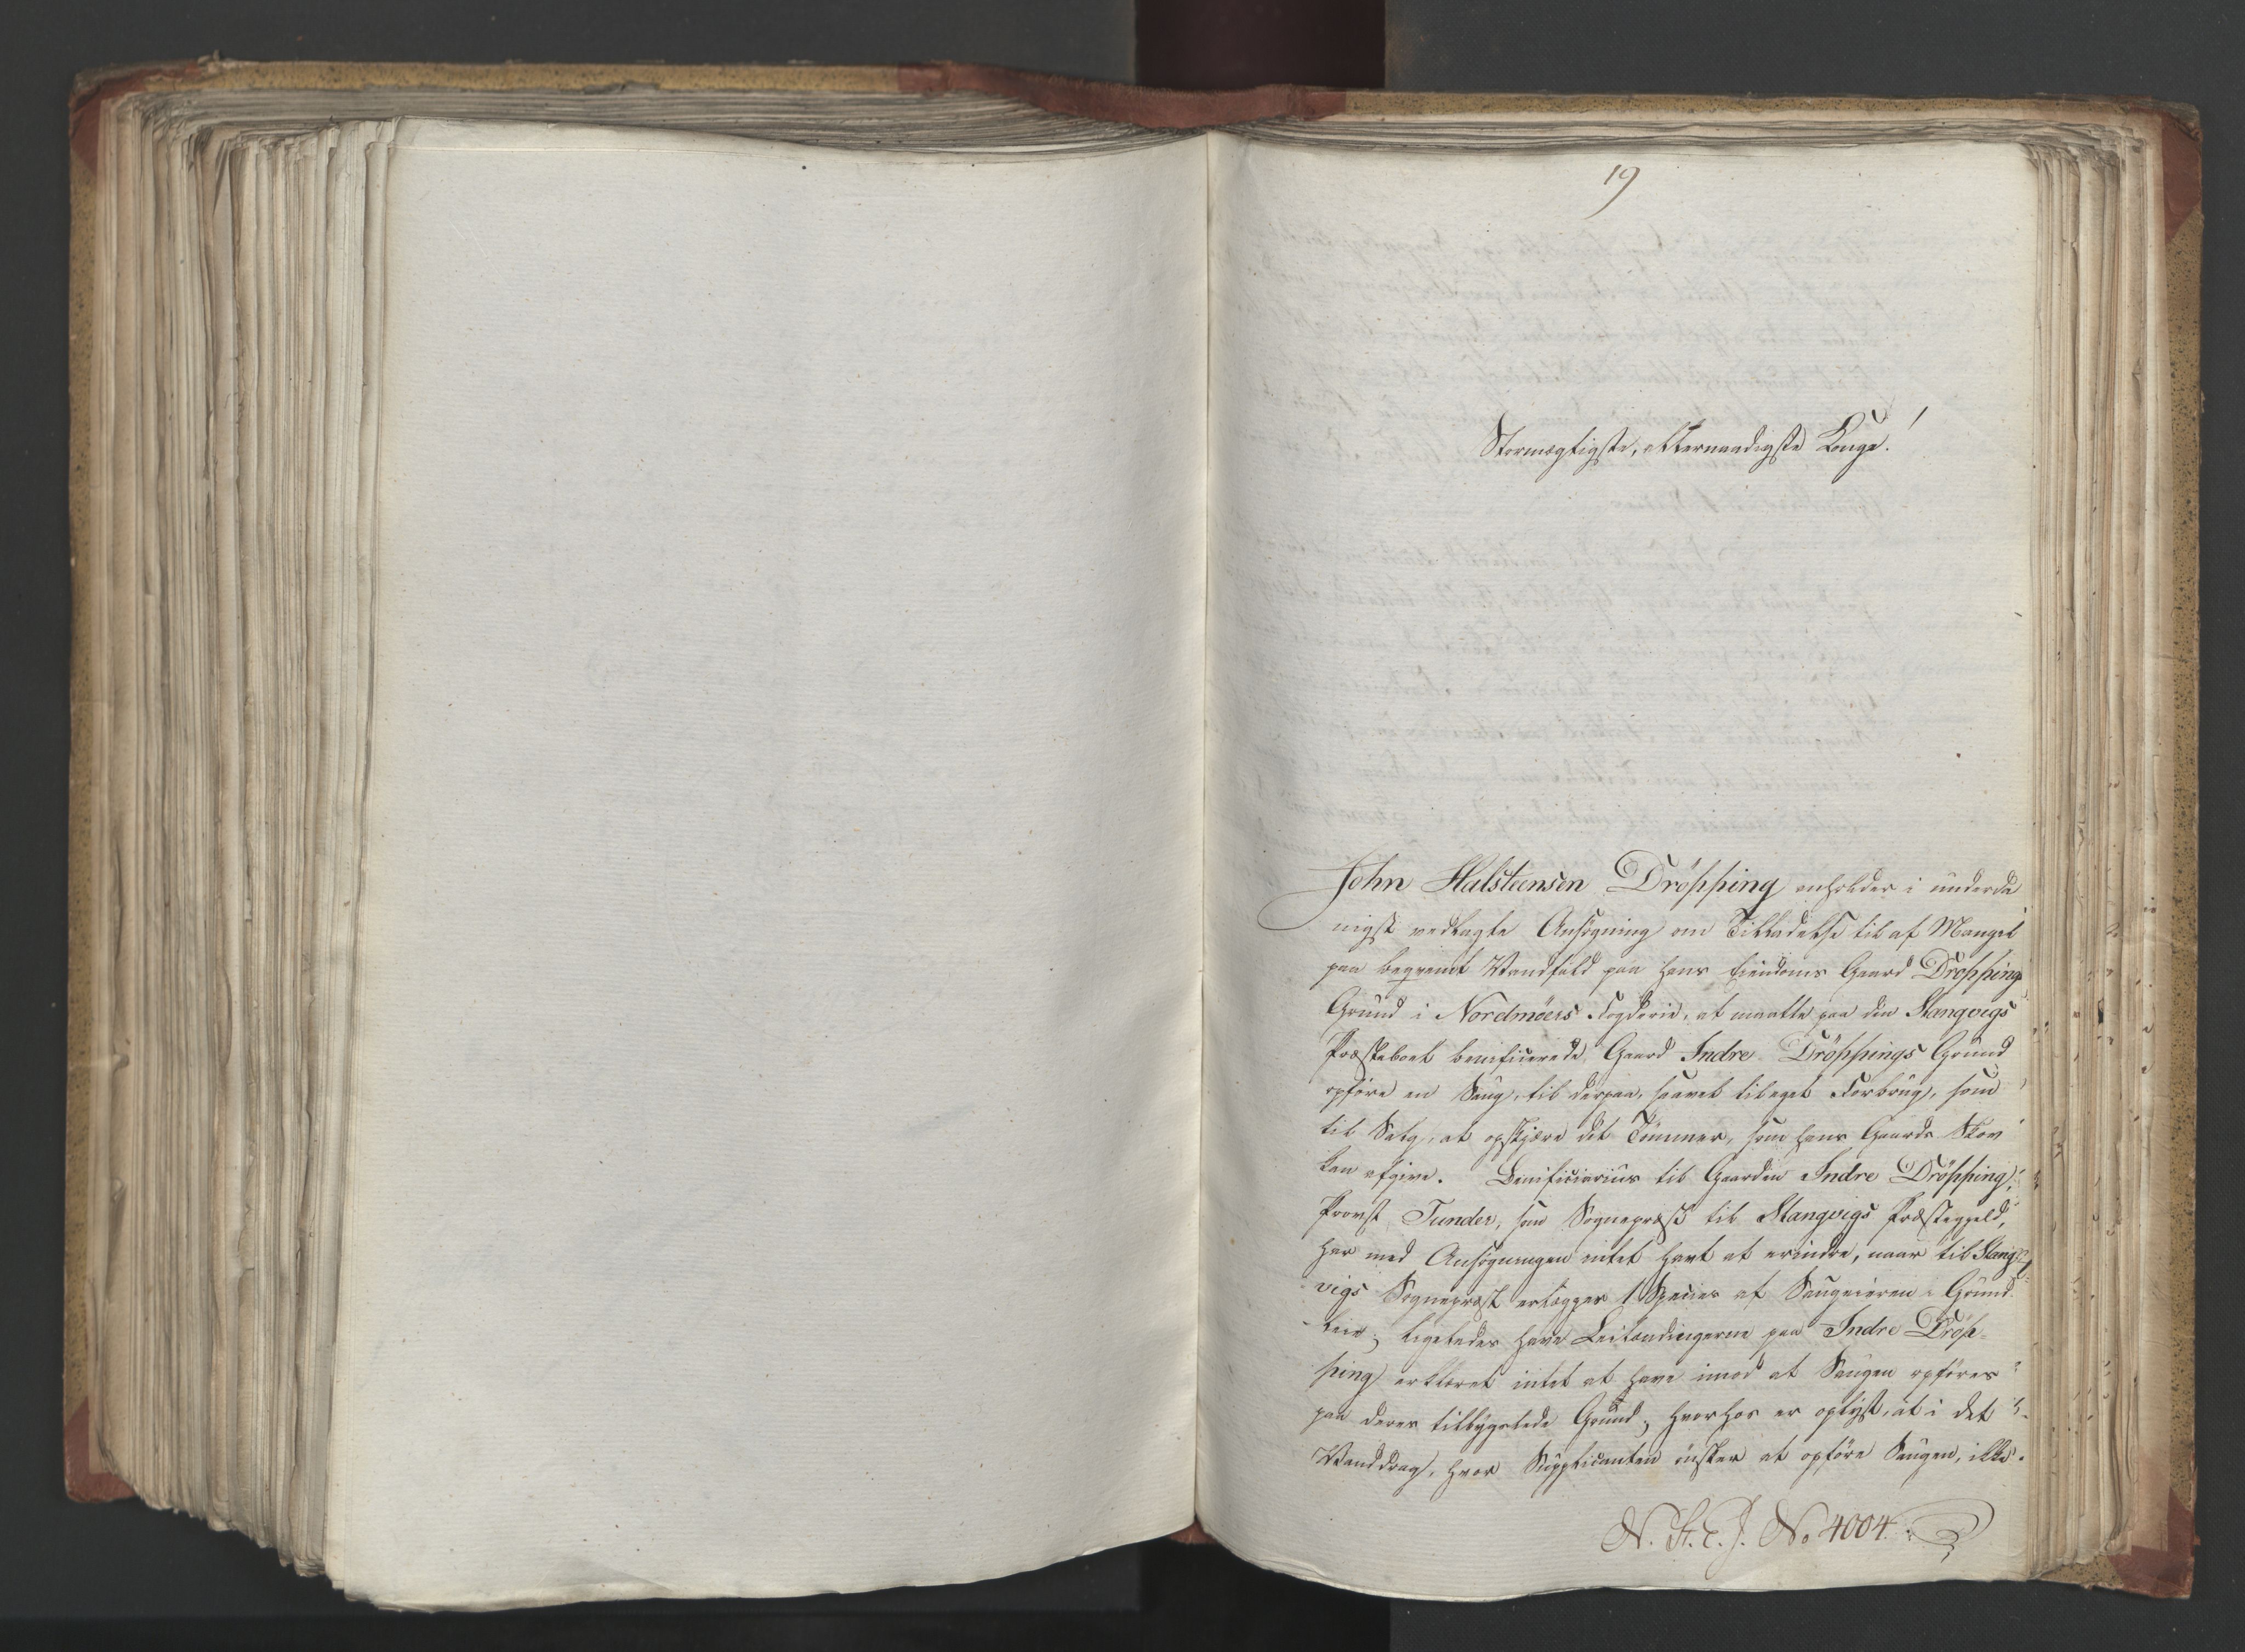 19
Stormægtigste, allernaadigste Konge!
John Halsteensen Dröpping anholder i underda
nigst vedlagte Ansögning om Tilladelse til af Mangel
paa beqvemt Vandfald paa hans Eiendoms Gaard Dröppings
Grund i Nordmöers Fogderie, at maatte paa den Stangvigs
Præstebol beneficerede Gaard Indre Dröppings Grund
opföre en Saug, til derpaa, saavel til eget Forbrug, som
til Salg, at opskjære det Tömmer, som hans Gaards Skov
kan afgive. Beneficiarius til Gaarden Indre Dröpping,
Provst Tunder, som Sognepræst til Stangvigs Præstegjeld,
har med Ansögningen intet havt at erindre, naar til Stang-
vigs Sognepræst erlægges 1 Species af Saugeieren i Grund-
leie; ligeledes have Leilændingerne paa Indre Dröp-
ping erklæret intet at have imod at Saugen opföres
paa deres tilbyxlede Grund; hvorhos er oplyst, at i det
Vanddrag, hvor Supplicanten önsker at opföre Saugen, ikke
N. St. C. J. No 4004.